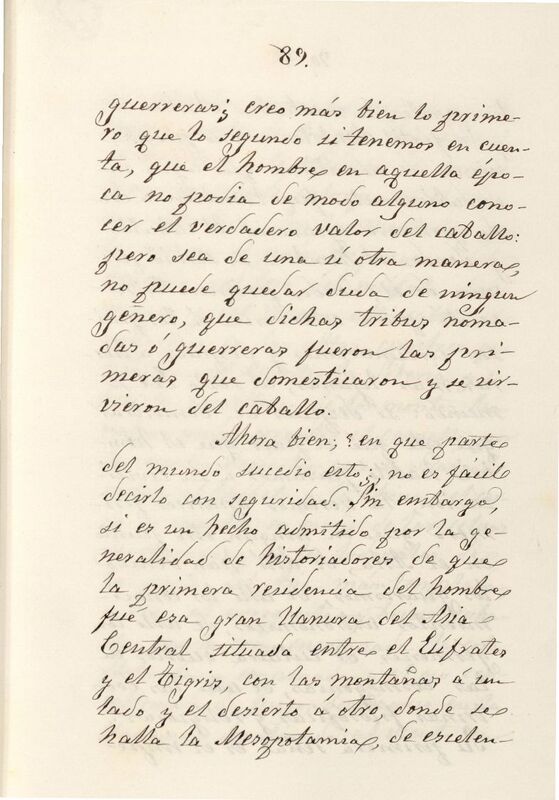 89.
guerreras; creo más bien lo prime-
ro que lo segundo si tenemos en cuen-
ta, que el hombre en aquella épo-
ca no podia de modo alguno cono-
cer el verdadero valor del caballo:
pero sea de una ú otra manera,
no puede quedar duda de ningun
género, que dichas tribus nóma-
das ó guerreras fueron las pri-
meras que domesticaron y se sir-
vieron del caballo.
Ahora bien; ¿en que parte
del mundo sucedio esto; no es fácil
decirlo con seguridad. Sin embargo,
si es un hecho admitido por la ge-
neralidad de historiadores de que
la primera residencia del hombre
fué esa gran llanura del Asia
Central situada entre el Eúfrates
y el Tigris, con las montañas á un
lado y el desierto á otro, donde se
halla la Mesopotamia, de escelen-